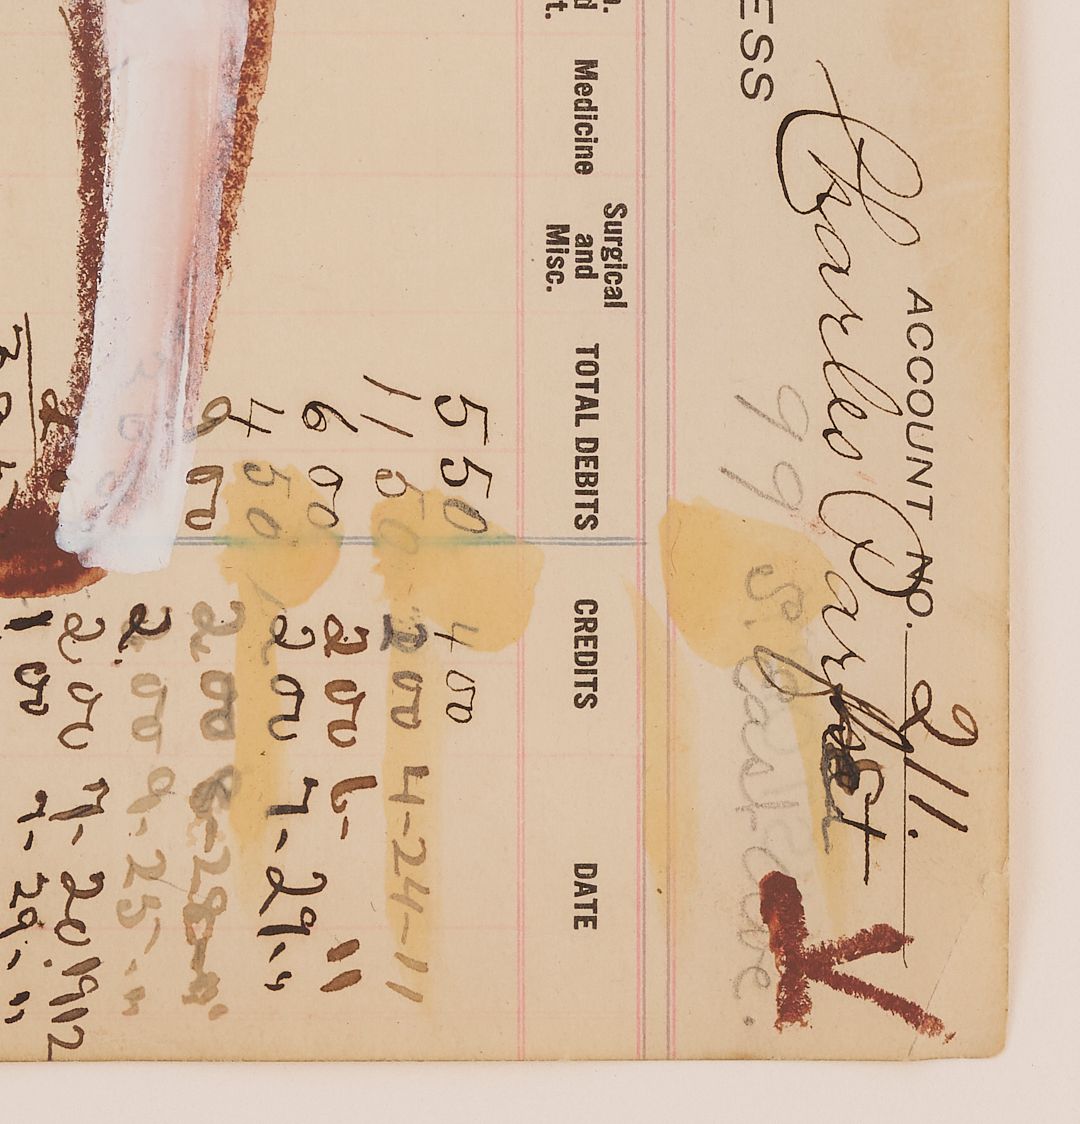 ACCOUNT No. 211.
Charles
ESS 99 S. East Ave.
Medicine Surgical and Misc. TOTAL DEBITS CREDITS DATE
5 50 4 00
11 50 2 00 4-24-11
6 00 2 00 6- 11
4 50 2 00 7-29-11
9 00 2.00
2.00 9-25-11
2 00 7-20.1912
1.00 7-29-11